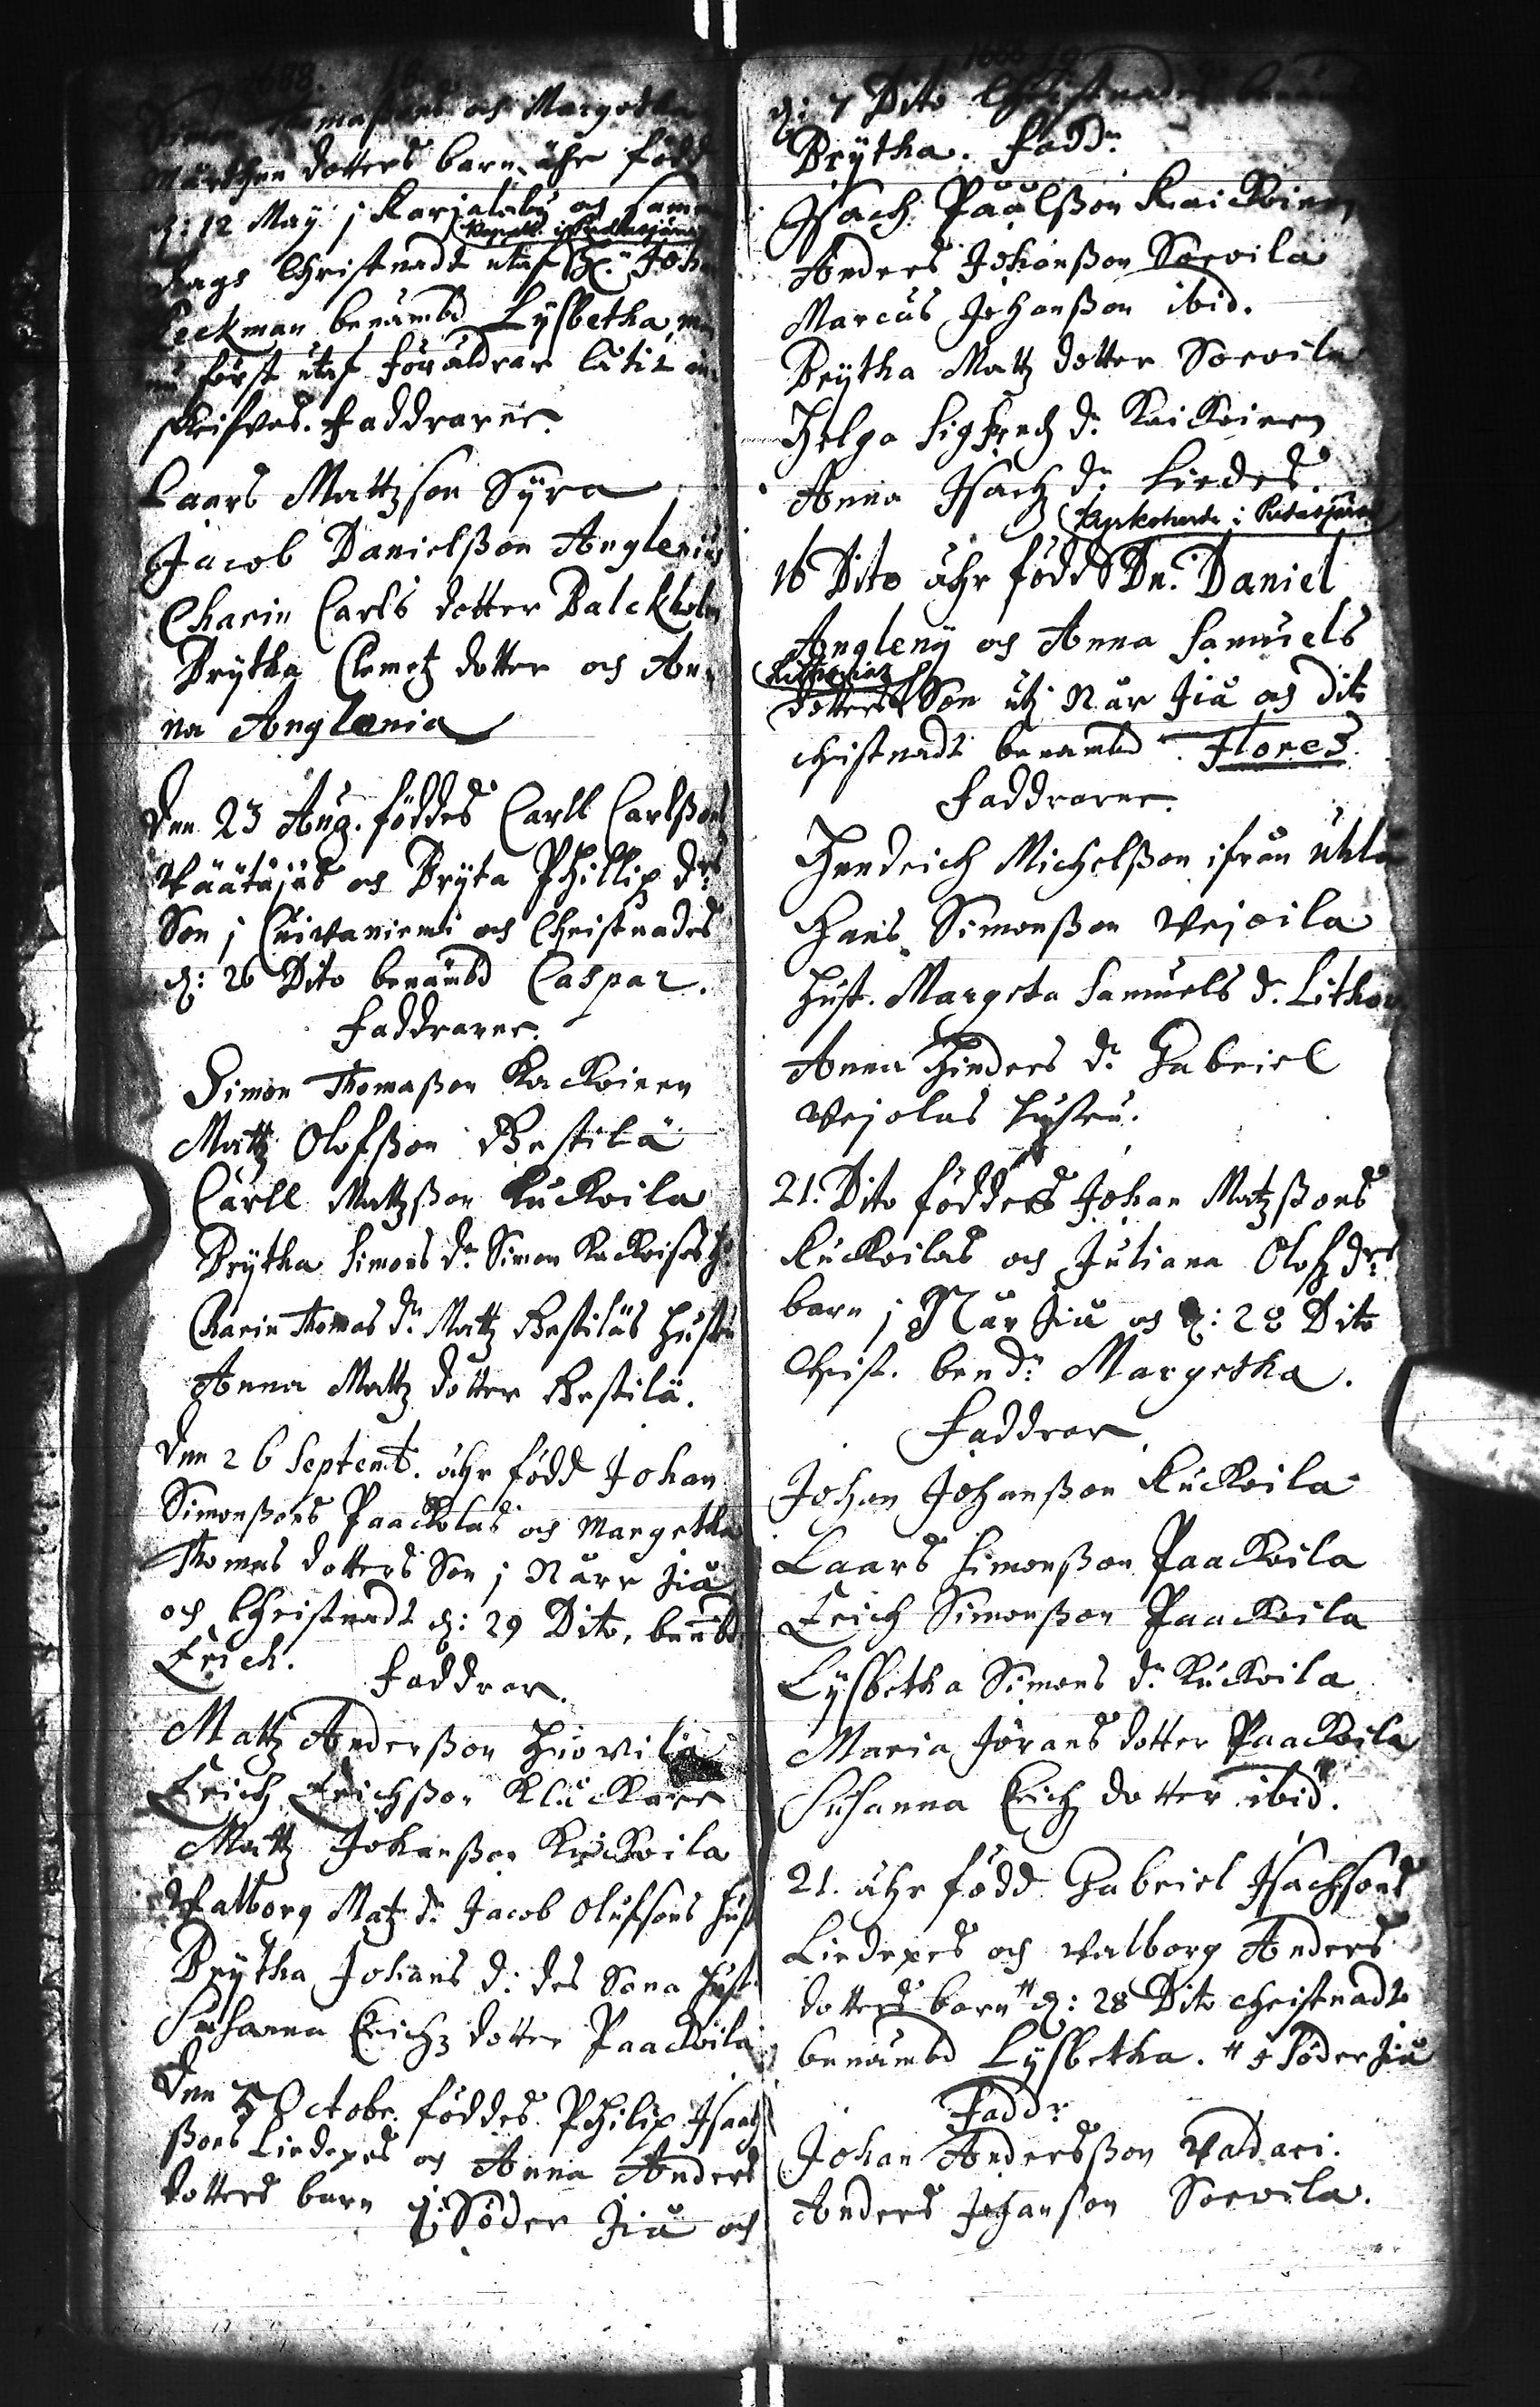 1688.
Thomassons och Margetha
Mårthen dotters barn ähr född
d: 12 May j Karjalaby och samma
Capell. i Pudasjärfvi
dags Christnadt utaf H:n Joh.
Keckman benämbd Lysbetha, men
nu först utaf föräldrar låtit in
skrifvas. Faddrarne.
Laars Mattzson Syra
Jacob Danielsson Anglenius
Charin Carls dotter Balckholm
Brytha Clemetz dotter och An-
na Anglenia
Den 23 Aug. föddes Carll Carlssons
Wäätäjäs och Bryta Phillip drs
Son j Cuivaniemi och Christnades
d: 26 Dito benämbd Caspar.
Faddrarne.
Simon Thomasson Kackinen
Mattz Olofsson Bestilä
Carll Mattzson Kuckoila
Brytha Simons dr Simon Kackises H
Charin Thomas dr Mattz Bestiläs hustru
Anna Mattz dotter Bestilä.
Den 26 Septemb. ähr född Johan
Simonssons Paackolas och Margetha
Thomas dotters Son j Norr Jiå
och Christnadt d: 29 Dito, benbd
Erich. Faddrar.
Mattz Andersson Hiovilä
Erich Erichsson Kluckare
Mattz Johansson Kuckoila
Walborg Matz dr Jacob Olufsons hust
Brytha Johans d: des Sona hust
Susanna Erichz dotter Paackoila
Den 5 Octobr. föddes Philip Isach
ssons Liedexes och Anna Anders
dotters barn j Söder Jiå och
1688
d: 7 Dito Christnadt
Brytha. Faddr
Isach Påålsson Kaickoinen
Anders Johansson Sorvila
Marcus Johansson ibid.
Brytha Mattz dotter Sorvila
Helga Sigfredz dr Kaickoinen
Anna Isachz dr Liedes.
Kyrkoherde i Pudasjärfvi
16 Dito ähr född Dn. Daniel
Angleny och Anna Samuels
Lithovia
dotters Son utj Når Jiå och dito
christnadt benämbd Flores
Faddrarne.
Hendrich Michelsson ifrån Uhlå
Hans Simonsson Vejoila
Hust. Margeta Samuels d. Lithov
Anna Hinders dr Gabriel
Vejolas hustru.
21. Dito föddes Johan Matzssons
Kuckoilas och Juliana Olofz drs
barn j Når Jiå och d: 28 Dito
Christ. bendr Margetha.
Faddrar
Johan Johansson Kuckoila
Laars Simonsson Paackoila
Erich Simonsson Paackoila
Lysbetha Simons dr Kuckoila
Maria Jörans dotter Paackoila
Susanna Erichz dotter ibid.
21. ähr född Gabriel Isachsons
Liedexes och Valborg Anders
dotters barn # d: 28 Dito christnadt
benämbd Lysbetha. # j Söder Jiå
Faddr
Johan Andersson Vadari.
Anders Johanson Sorvila.